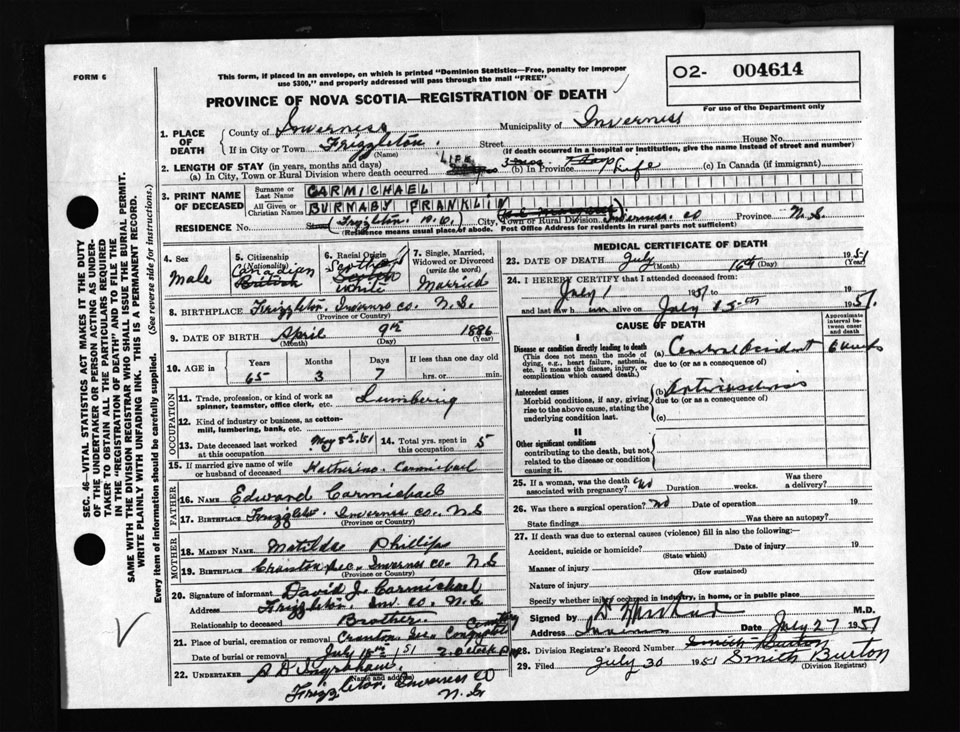 FORM 6
This form, if placed in an envelope, on which is printed "Dominion Statistics—Free, penalty for improper
use $300," and properly addressed will pass through the mail "FREE"
PROVINCE OF NOVA SCOTIA—REGISTRATION OF DEATH
O2- 004614
For use of the Department only
1. PLACE OF DEATH
County of Inverness Municipality of Inverness
If in City or Town Frizzleton. Street House No.
(Name) (If death occurred in a hospital or institution, give the name instead of street and number)
2. LENGTH OF STAY (in years, months and days)
(a) In City, Town or Rural Division where death occurred LIFE (b) In Province Life (c) In Canada (if immigrant)
3. PRINT NAME OF DECEASED
Surname or Last Name CARMICHAEL
All Given or Christian Names BURNABY FRANKLIN
RESIDENCE No. (Frizleton. P.O.) City, Town or Rural Division Inverness. Co Province N.S.
(Residence means usual place of abode. Post Office Address for residents in rural parts not sufficient)
4. Sex Male
5. Citizenship (Nationality) Canadian British
6. Racial Origin White
7. Single, Married, Widowed or Divorced (write the word) Married
8. BIRTHPLACE Frizzleton, Inverness co. N.S.
(Province or Country)
9. DATE OF BIRTH April 9th 1886
(Month) (Day) (Year)
10. AGE in Years Months Days If less than one day old
65 3 7 hrs. or min.
OCCUPATION
11. Trade, profession, or kind of work as spinner, teamster, office clerk, etc. Lumbering
12. Kind of industry or business, as cotton-mill, lumbering, bank, etc.
13. Date deceased last worked at this occupation May 5th/51 14. Total yrs. spent in this occupation 5
15. If married give name of wife or husband of deceased Katherine Carmichael
FATHER
16. NAME Edward Carmichael
17. BIRTHPLACE Frizzleton. Inverness co. N.S
(Province or Country)
MOTHER
18. MAIDEN NAME Matilda Phillips
19. BIRTHPLACE Inverness co. N.S
(Province or Country)
20. Signature of informant David J. Carmichael
Address Frizzleton. Inv. Co. N.S.
Relationship to deceased Brother.
21. Place of burial, cremation or removal Cemetery
Date of burial or removal July 18th 1951 2.0 clock P.M
22. UNDERTAKER
(Name and address)
Frizzleton, Inverness Co
N.S
MEDICAL CERTIFICATE OF DEATH
23. DATE OF DEATH July 16th 1951
(Month) (Day) (Year)
24. I HEREBY CERTIFY that I attended deceased from
July 1 1951 to
and last saw h im alive on July 15-th 1951.
CAUSE OF DEATH
Approximate interval between onset and death
I
Disease or condition directly leading to death
(This does not mean the mode of dying, e.g., heart failure, asthenia, etc. It means the disease, injury, or complication which caused death.)
(a)
due to (or as a consequence of)
Antecedent causes
Morbid conditions, if any, giving rise to the above cause, stating the underlying condition last.
(b)
due to (or as a consequence of)
(c)
II
Other significant conditions
contributing to the death, but not related to the disease or condition causing it.
25. If a woman, was the death associated with pregnancy? No Duration weeks. Was there a delivery?
26. Was there a surgical operation? No Date of operation 19
State findings Was there an autopsy?
27. If death was due to external causes (violence) fill in also the following:
Accident, suicide or homicide? Date of injury 19
(State which)
Manner of injury
(How sustained)
Nature of injury
Specify whether injury occurred in industry, in home, or in public place
Signed by M.D.
Address Date July 27 1951
28. Division Registrar's Record Number Smith Burton
29. Filed July 30 1951 Smith Burton
(Division Registrar)
SEC. 46—VITAL STATISTICS ACT MAKES IT THE DUTY
OF THE UNDERTAKER OR PERSON ACTING AS UNDERTAKER
TO OBTAIN ALL THE PARTICULARS REQUIRED
IN THE "REGISTRATION OF DEATH" AND TO FILE THE
SAME WITH THE DIVISION REGISTRAR WHO SHALL ISSUE THE BURIAL PERMIT.
WRITE PLAINLY WITH UNFADING INK. THIS IS A PERMANENT RECORD.
Every item of information should be carefully supplied. (See reverse side for instructions.)